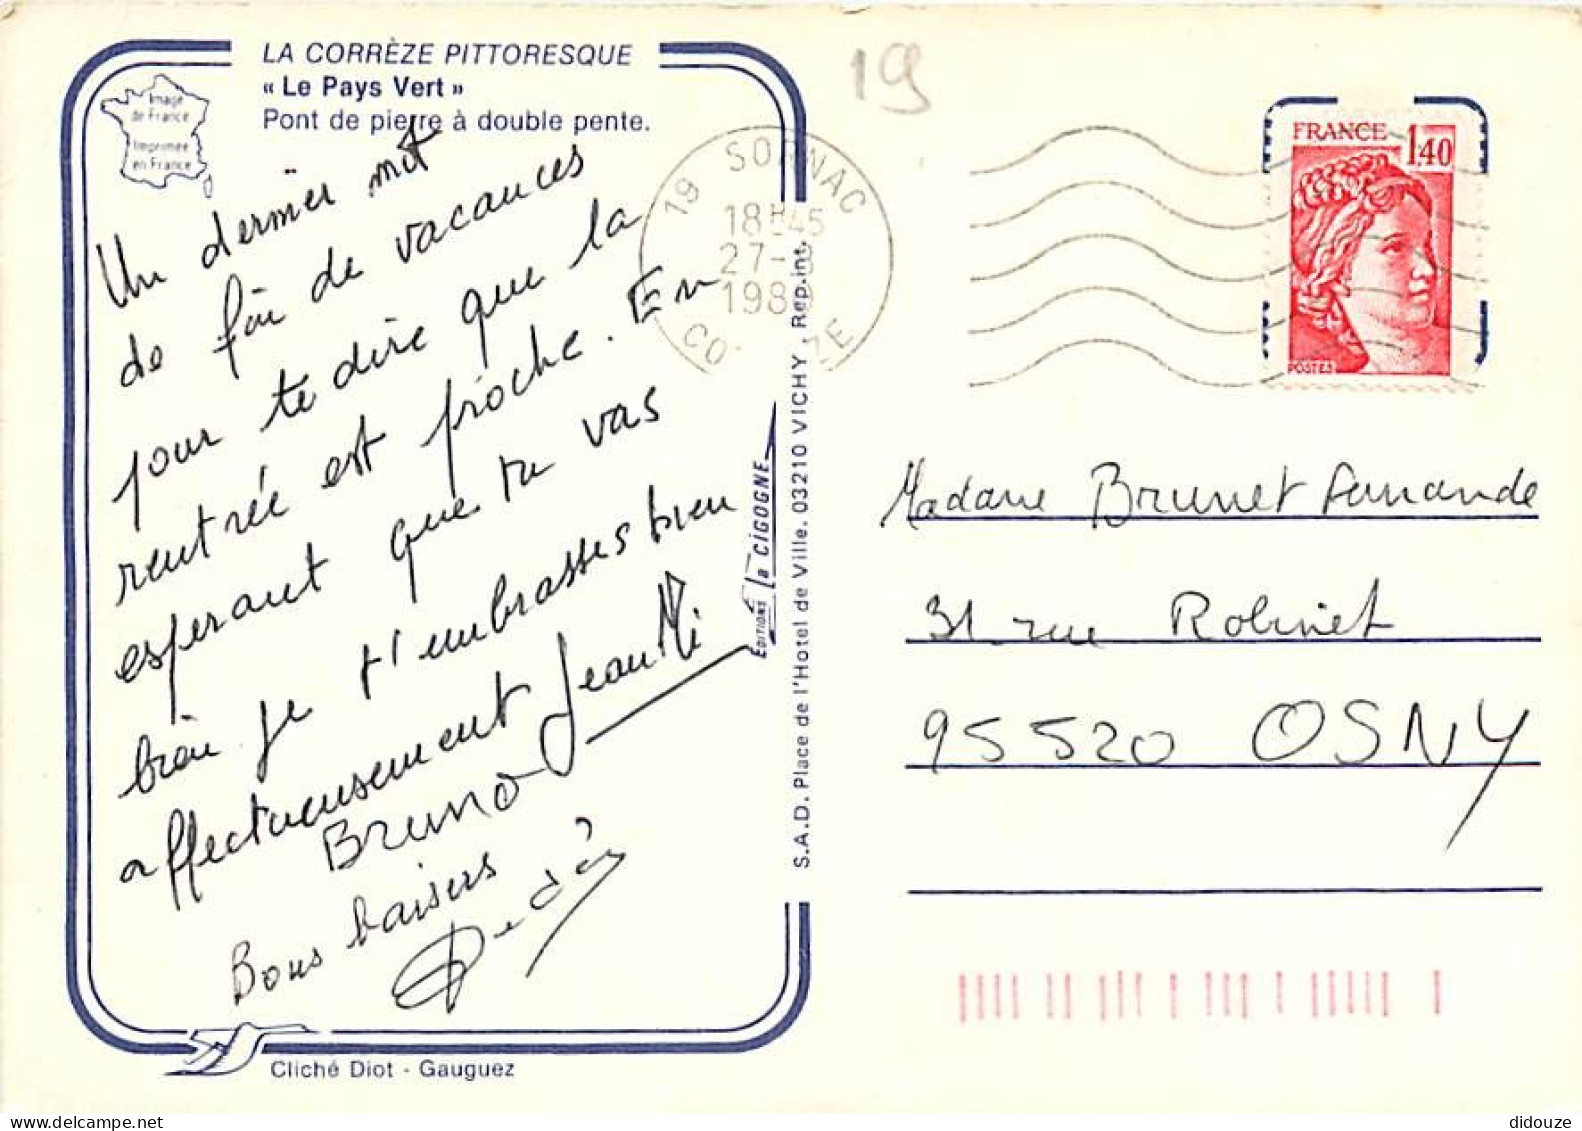 LA CORRÈZE PITTORESQUE
« Le Pays Vert »
Pont de pierre à double pente.
Image
de France
Imprimée
en France
Un dernier mot
de fin de vacances
pour te dire que la
rentrée est proche. En
esperant que tu vas
bien je t'embrasses bien
affectueusement Jean Mi
Bruno
Bons baisers
EDITIONS la CIGOGNE
S.A.D. Place de l'Hotel de Ville. 03210 VICHY . Rep.int.
Cliché Diot - Gauguez
19
19 SORNAC
18H45
27-8
1980
CORREZE
FRANCE
1,40
POSTES
Madame Brunet Fernande
31 rue Robinet
95520 OSNY
didouze